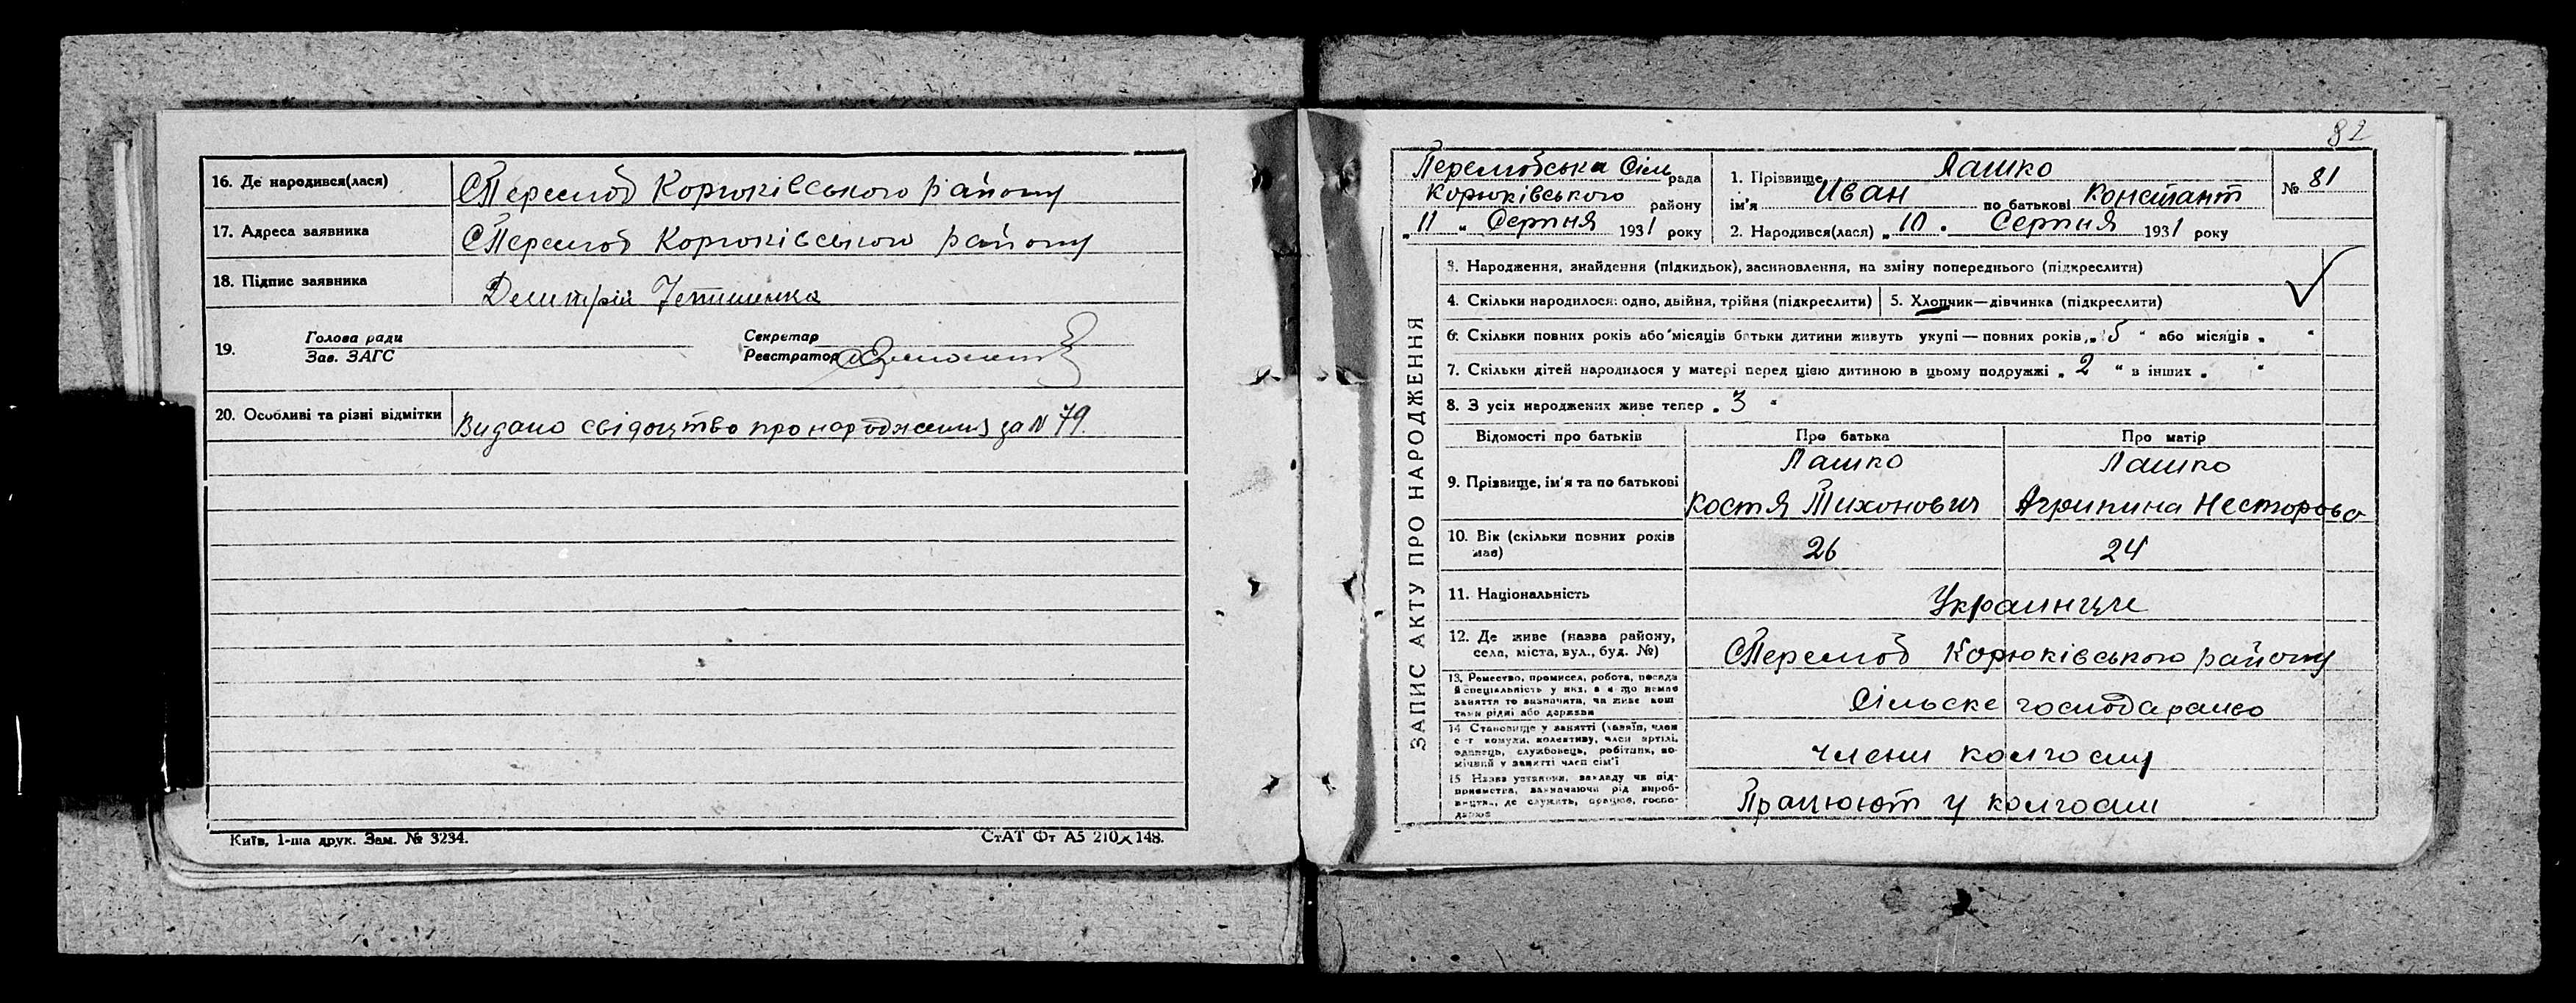 16. Де народився(лася) С Перемоб Корюківського району
17. Адреса заявника С Перемоб Корюківського району
18. Підпис заявника
19. Голова ради
Зав. ЗАГС
Секретар
Реєстратор
20. Особливі та різні відмітки Видано свідоцтво про народження за N 79.
Київ, 1-ша друк. Зам. № 3234.
СтАТ Фт А5 210х148.
82
Перемобська Сіль рада
Корюківського району
„ 11 „ Серпня 1931 року
1. Прізвище Лашко
ім'я Иван по батькові Констант
2. Народився(лася) „ 10 . Серпня 1931 року
№ 81
ЗАПИС АКТУ ПРО НАРОДЖЕННЯ
3. Народження, знайдення (підкидьок), засиновлення, на зміну попереднього (підкреслити)
4. Скільки народилося: одно, двійня, трійня (підкреслити)
5. Хлопчик—дівчинка (підкреслити)
6. Скільки повних років або місяців батьки дитини живуть укупі — повних років „ 5 “ або місяців „ “
7. Скільки дітей народилося у матері перед цією дитиною в цьому подружжі „ 2 “ в інших „ “
8. З усіх народжених живе тепер „ 3 “
Відомості про батьків
Про батька
Про матір
9. Прізвище, ім'я та по батькові
Лашко
Костя Тихонович
Лашко
Агрипина Несторово
10. Вік (скільки повних років має)
26
24
11. Національність
Украинци
12. Де живе (назва району, села, міста, вул., буд. №)
С Перемоб Корюківського району
13. Ремество, промисел, робота, посада й спеціальність у них, а якщо немає заняття то зазначити, чи живе кош тами рідні або держави
Сільске господарсво
14. Становище у занятті (хазяїн, член с-г комуни, колективу, член артілі, одинець, службовець, робітник, помічний у занятті член сім'ї
члени колгоспу
15. Назва установи, закладу чи підприємства, зазначаючи рід виробництва, де служить, працює, господарює
Працюют у колгоспі